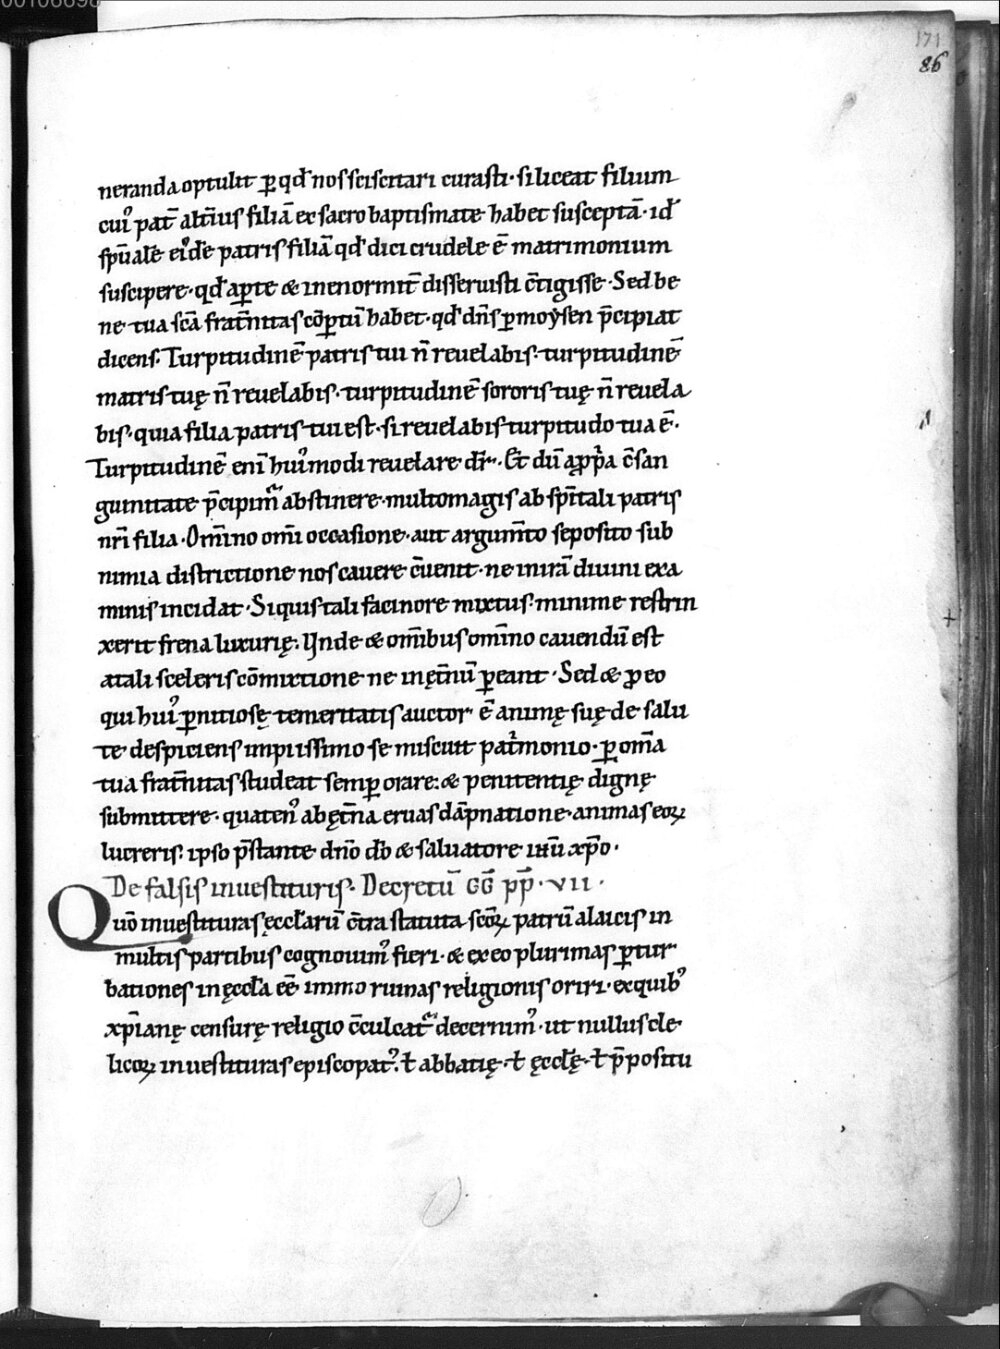 00106698
171
86
neranda optulit ꝑ qđ nos sciscitari curasti· si liceat filium
cuiꝰ pat̄ alt̄ius filiā ex sacro baptismate habet susceptā· id̄
sp̄uale eiꝰdē patris filiā qđ dici crudele ē matrimonium
suscipere· qđ aꝑte & inenormit̄ disseruisti c̄tigisse· Sed be
ne tua sc̄a frat̄nitas cōꝑtū habet· qđ dn̄s ꝑ moẏsen p̄cipiat
dicens· Turpitudinē patris tui n̄ reuelabis· turpitudinē
matris tuę n̄ reuelabis· turpitudinē sororis tuę n̄ reuela
bis· quia filia patris tui est· si reuelabis turpitudo tua ē·
Turpitudinē enī huiꝰmodi reuelare dr̄· Et dū a ꝓpͥa c̄san
guinitate p̄cipimꝰ abstinere· multo magis ab sp̄itali patris
nr̄i filia· Om̄ino omī occasione· aut argum̄to seposito sub
nimia districtione nos cauere c̄uenit· ne in irā diuini exa
minis incidat· Si quis tali facinore mixtus· minime restrin
xerit frena luxurię· Unde & om̄ibus om̄ino cauendū est
a tali sceleris cōmixtione ne in ęt̄nū ꝑeant· Sed & ꝓ eo
qui huiꝰ ꝑnitiosę temeritatis auctor ē animę suę de salu
te despiciens impiissimo se miscuit pat̄monio· ꝑ om̄a
tua frat̄nitas studeat semꝑ orare· & penitentię dignę
submittere· quatenꝰ ab ęt̄na eruas dāpnatione· animas eoꝝ
lucreris· ipso p̄stante dn̄o dō & saluatore ih̄u xp̄o·
De falsis inuestituris· Decretū GḠ pp̄· VII·
Quō inuestituras ęccl̄arū c̄tra statuta sc̄oꝝ patrū a laicis in
multis partibus cognouimꝰ fieri· & ex eo plurimas ꝑtur
bationes in ęccl̄a eē immo ruinas religionis oriri· ex quibꝰ
xp̄ianę censurę religio c̄culcat᷑ decernimꝰ· ut nullus cle
licoꝝ inuestituras episcopatꝰ· ł abbatię· ł ęccl̄ę· ł p̄positu